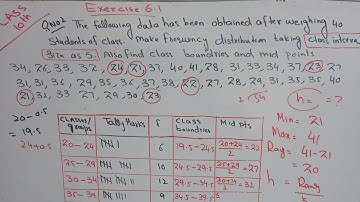 CLASS 10th
Exercise 6.1
Q.No2 The following data has been obtained after weighing 40
Students of class. make frequency distribution taking class interval
Size as 5. Also find class boundries and mid points.
34, 26, 33, 32, 24, 21, 37, 40, 41, 28, 31, 33, 34, 37, 23, 27
31, 31, 36, 29, 35, 36, 37, 38, 22, 27, 28, 29, 31, 35, 35, 40
21, 32, 33, 27, 29, 30, 23
h = = ?
20-0.5
= 19.5
24+0.5
Classes/ groups Tally Marks f Class boundries Mid pts
20-24 6 19.5-24.5 20+24/2 = 22
25-29 10 24.5-29.5 25+29/2 = 27
30-34 12 29.5-34.5 30+34/2 = 32
35-39 9 34.5-39.5
Min = 21
Max = 41
Rag = 41-21
= 20
h =